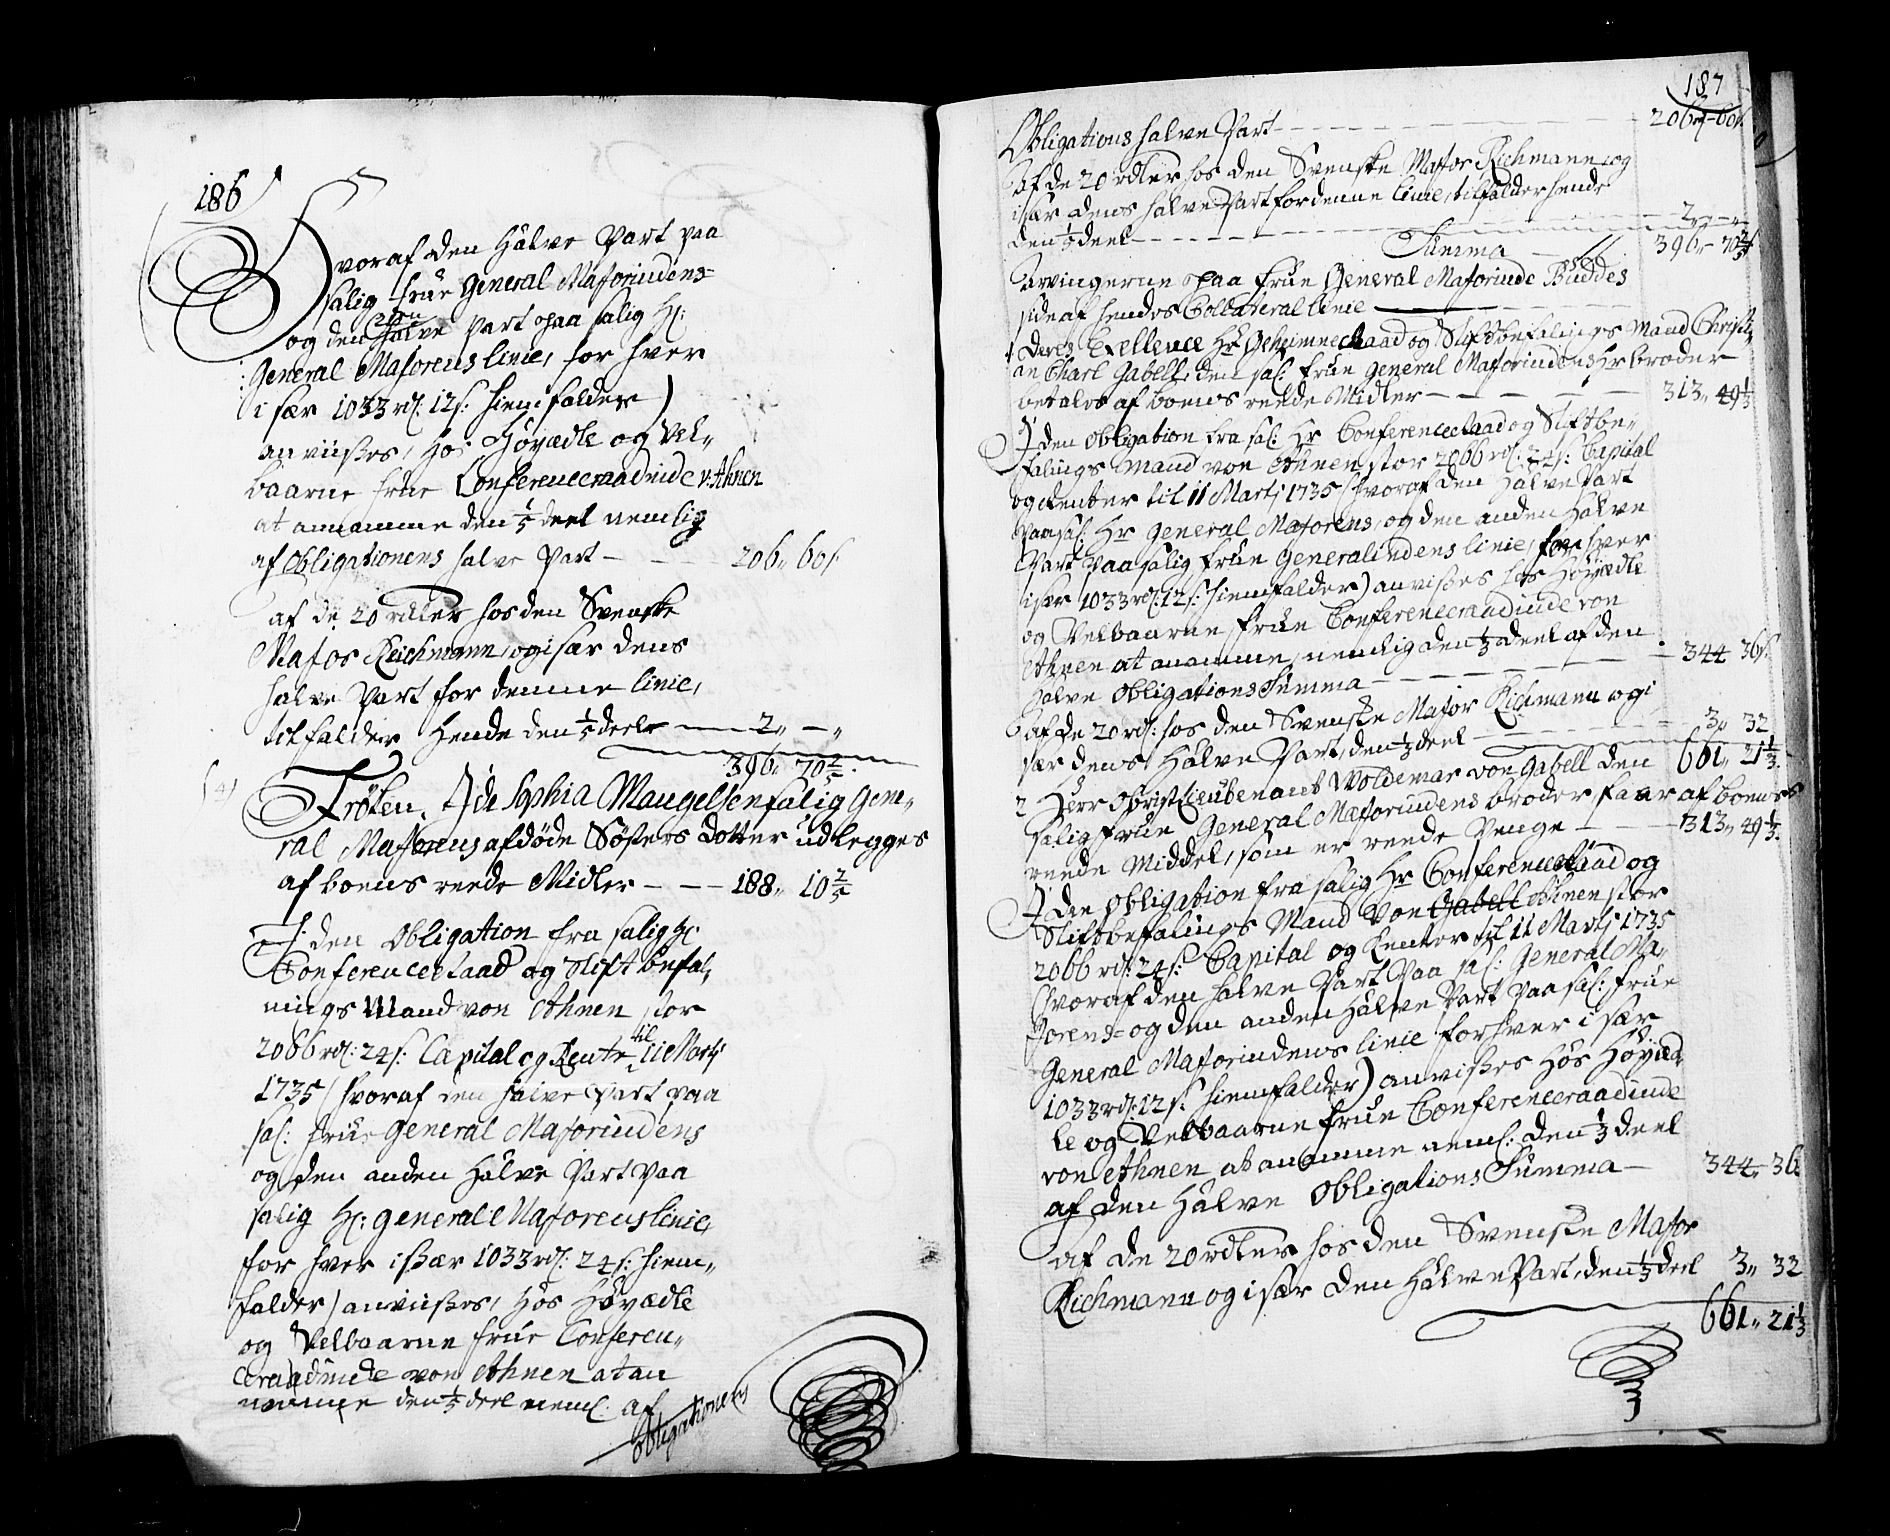 186
Hvoraf den halve Part paa
salig Frue General Majorindens
og den anden halve Part paa salig Hr:
General Majorens linie, for hver
i sær 1033 rd: 12 s: hiemfalder)
anviises, hos Höyædle og Vel-
baarne Frue Conferenceraadinde v: Ahnen
at annamme den 1/5 deel nemlig
af Obligationens halve Part — — 206„ 60 s
af de 20 rdler hos den Svenske
Major Reichmann, og i sær dens
halve Part for denne linie,
tilfalder Hende den 1/5 deel — 2„ — „
396„ 70 2/5
(4) Fröken, Ide Sophia Mangelsen salig Gene-
ral Majorens afdöde Sösters dotter udlegges
af boens reede Midler — — 188„ 10 2/5
I den Obligation fra salig Hr
Conferenceraad og Stiftbefal,
nings Mand von Ahnen stor
2066 rd: 24 s: Capital og Rente til 11 Martj
1735 (hvoraf den halve Part paa
sal: Frue General Majorindens
og den anden halve Part paa
salig Hr: General Majorens linie,
for hver i sær 1033 rd: 24 s: hiem„
falder) anviises, hos Höyædle
og Velbaarne Frue Conferen„
ceraadinde von Ahnen at an
namme den 1/5 deel neml: af
Obligationens
187
Obligations halve Part — — — 206 rd — 60 s.
af de 20 rdler hos den Svenske Major Richmann og
i sær dens halve Part for denne linie, tilfalder hende
den 1/5 deel — — — 2„ — „
Summa — 396„ 70 2/5
Arvingerne paa Frue General Majorinde Buddes
side af hendes Collateral linie —
1 Deres Exellence Hr Geheimneraad og Stiftbefalings Mand Christi„
an Charl Gabell, den sal: Frue General Majorindens Hr broder
betales af boens reede Midler — — — 313„ 49 1/3
I den Obligation fra sal: Hr Conferenceraad og Stiftbe„
falings Mand von Ahnen stor 2066 rd: 24 s: Capital
og Renter til 11 Martj 1735 (hvoraf den halve Part
paa sal: Hr General Majorens, og den anden halve
Part paa salig Frue Generalindens linie, for hver
i sær 1033 rd: 12 s: hiemfalder) anvises hos Höyædle
og Velbaarne Frue Conferenceraadinde von
Ahnen at anamme, nemlig den 1/3 deel af den
halve Obligations Summa — — — 344 36 s.
af de 20 rd: hos den Svenske Major Richmann og i
sær dens halve Part, den 1/3 deel — — 3„ 32
661„ 21 1/3
2 Herr Obrist Lieutenant Woldemar von Gabell den
salig Frue General Majorindens broder, faar af boens
reede Middel, som er reede Penge — — 313„ 49 1/3
I den Obligation fra salig Hr Conferenceraad og
Stiftbefalings Mand von Gabell Ahnen stor
2066 rd: 24 s: Capital og Renter til 11 Martj 1735
(hvoraf den halve Part paa sal: General Ma„
jorens og den anden halve Part paa sal: Frue
General Majorindens linie for hver i sær
1033 rd: 12 s: hiemfalder) anvises hos Höyæd,
le og Velbaarne Frue Conferenceraadinde
von Ahnen at anamme neml: den 1/3 deel
af den halve Obligations Summa — 344„ 36
af de 20 rdlers hos den Svenske Major
Richmann og i sær den halve Part, den 1/3 deel 3„ 32
661„ 21 1/3